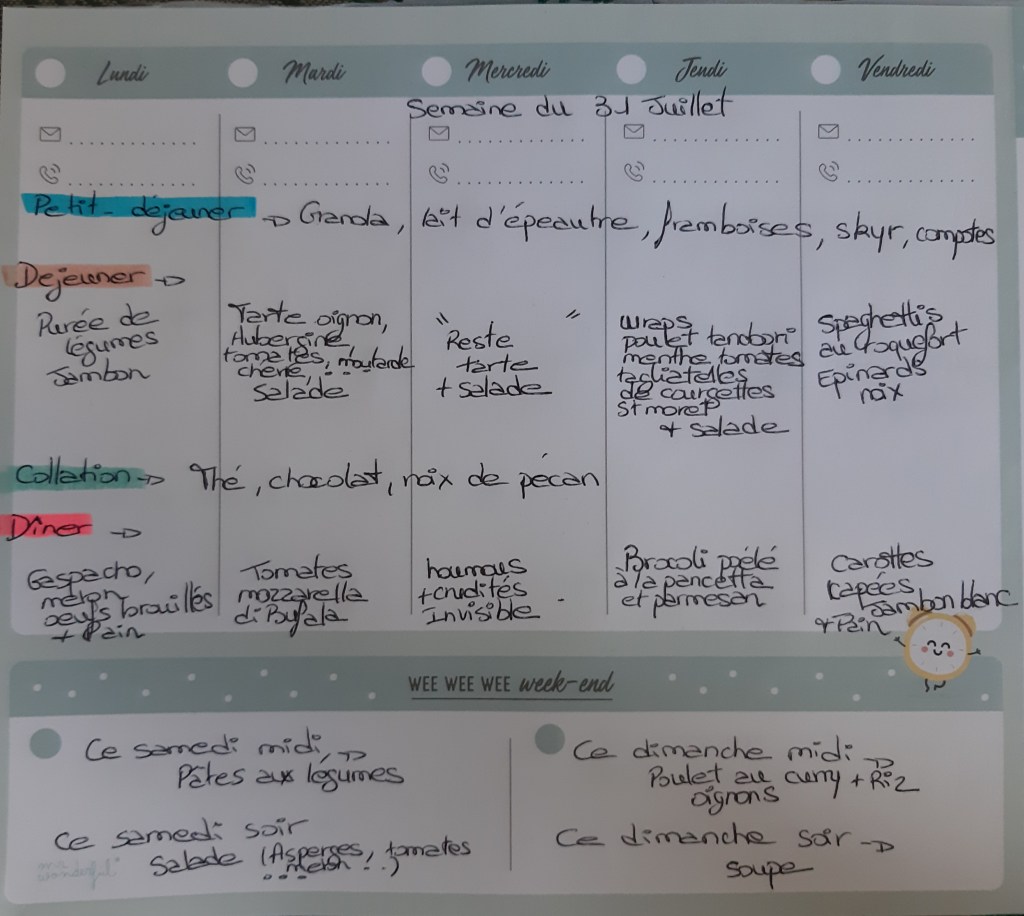 Lundi Mardi Mercredi Jeudi Vendredi
Semaine du 31 Juillet
Petit-déjeuner → Granola, lait d'épeautre, framboises, skyr, compotes
Dejeuner →
Purée de
légumes
Jambon
Tarte oignon,
Aubergine
tomates, moutarde
chèvre ...
Salade
" "
Reste
tarte
+ salade
wraps
poulet tandori
menthe tomates
tagliatelles
de courgettes
St moret
+ salade
Spaghettis
au roquefort
Epinards
noix
Collation → Thé, chocolat, noix de pécan
Dîner →
Gaspacho,
melon
oeufs brouillés
+ Pain
Tomates
mozzarella
di Bufala
houmous
+ crudités
Invisible
Brocoli poêlé
à la pancetta
et parmesan
Carottes
rapées
Jambon blanc
+ Pain
WEE WEE WEE week-end
Ce samedi midi, →
Pâtes aux légumes
Ce samedi soir
Salade (Asperges, tomates
melon ...)
Ce dimanche midi →
Poulet au curry + Riz
oignons
Ce dimanche soir →
soupe